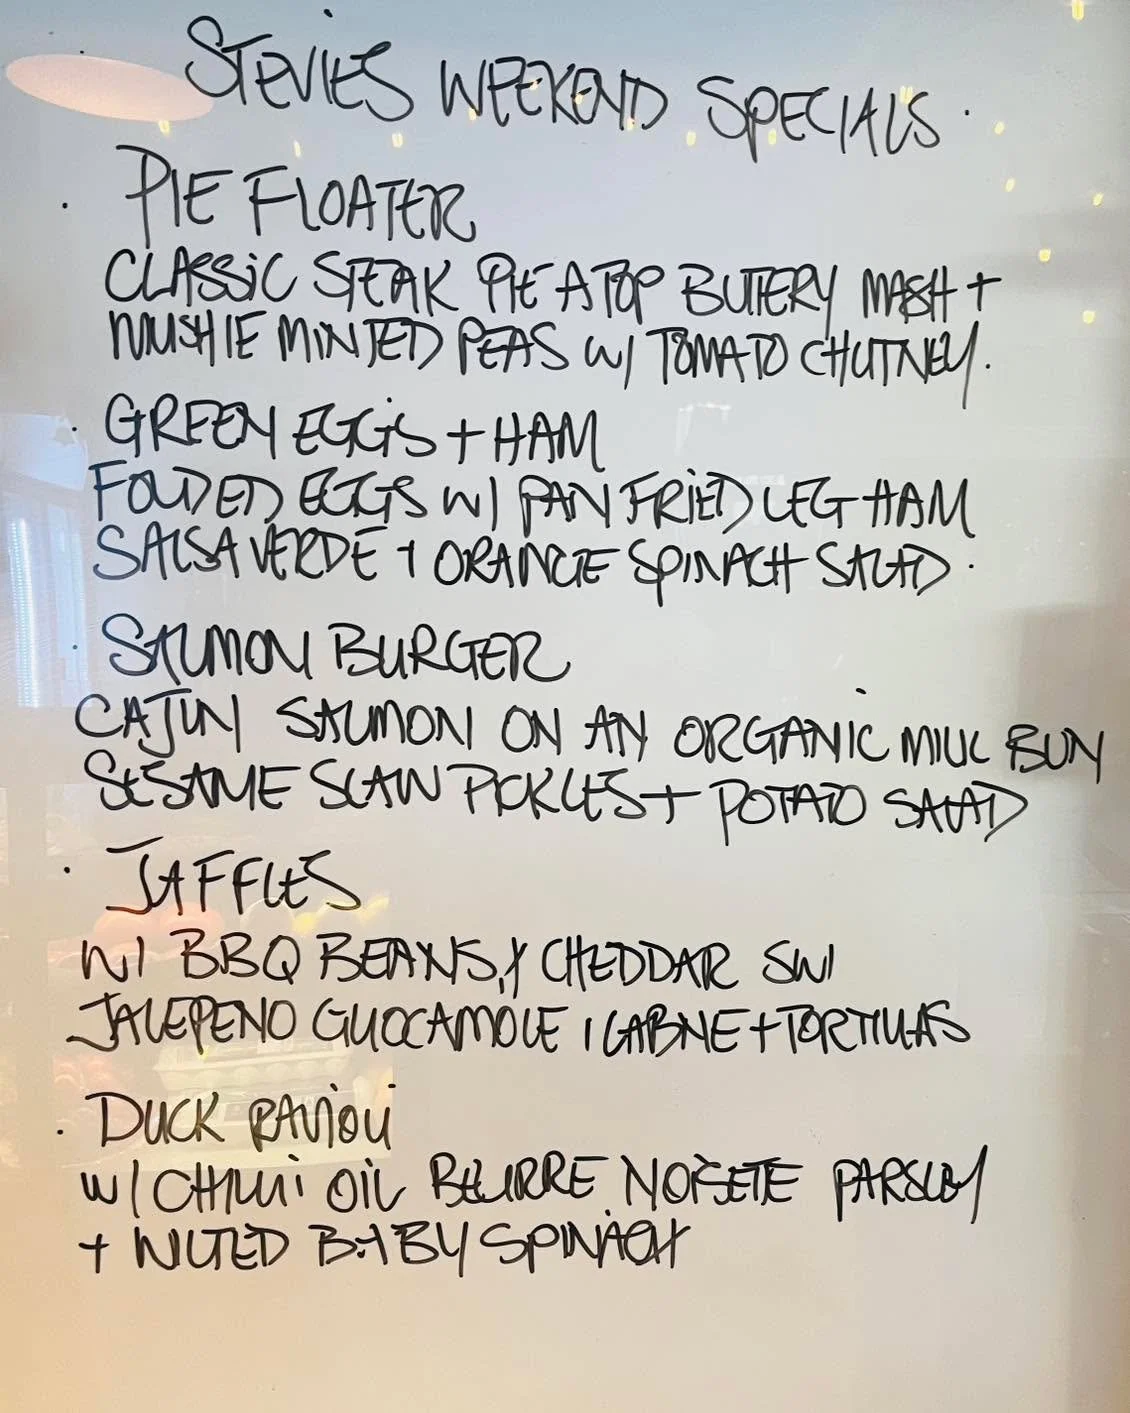 STEVIES WEEKEND SPECIALS.
· PIE FLOATER
CLASSIC STEAK PIE ATOP BUTTERY MASH +
MUSHIE MINTED PEAS W/ TOMATO CHUTNEY.
· GREEN EGGS + HAM
FOLDED EGGS W/ PAN FRIED LEG HAM
SALSA VERDE + ORANGE SPINACH SALAD.
· SALMON BURGER
CAJUN SALMON ON AN ORGANIC MILK BUN
SESAME SLAW PICKLES + POTATO SALAD
· JAFFLES
W/ BBQ BEANS, CHEDDAR SW/
JALEPENO GUOCAMOLE, LABNE + TORTILLAS
· DUCK RAVIOLI
W/ CHILLI OIL BEURRE NOISETE PARSLEY
+ WILTED BABY SPINACH